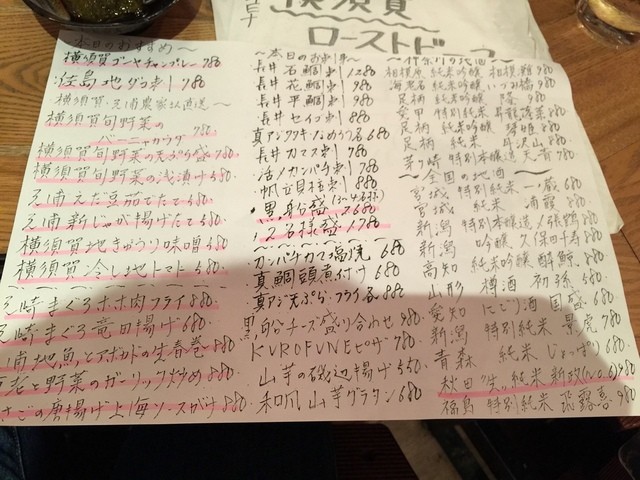 横須賀
ローストビーフ
本日のおすすめ〜
横須賀ゴーヤチャンプルー 780
佐島地ダコ刺し 780
横須賀・三浦農家さん直送〜
横須賀旬野菜の
バーニャカウダ 780
横須賀旬野菜の天ぷら盛 780
横須賀旬野菜の浅漬け 580
三浦えだ豆茹でたて 580
三浦新じゃが揚げたて 580
横須賀地きゅうり味噌 580
横須賀冷し地トマト 580
三崎まぐろホホ肉フライ 880
三崎まぐろ竜田揚げ 680
三浦地魚とアボカドの生春巻 880
と野菜のガーリック炒め 880
さごの唐揚げ上海ソースがけ 880
〜本日のお刺身〜
長井 石鯛刺し 1280
長井 花鯛刺し 980
長井 平刺し 980
長井 セイゴ刺し 880
長井 カマス刺し 780
活ツメカンパチ刺し 780
帆立貝柱刺し 880
黒船盛 2680
1.2名様盛 1780
カンパチカマ塩焼 680
真鯛頭煮付け 680
真アジ天ぷら・フライ 各 880
チーズ盛り合わせ 980
KUROFUNEピザ 780
山芋の磯辺揚げ 550
和風山芋グラタン 680
〜神奈川の地酒〜
相模原 純米吟醸 相模灘 980
海老名 純米吟醸 いづみ橋 980
足柄 純米吟醸 隆 980
愛甲 純米吟醸 昇龍蓬莱 980
足柄 吟醸
足柄 純米 丹沢山 880
茅ヶ崎 特別本醸造 天青 780
〜全国の地酒〜
宮城 特別純米 一ノ蔵 680
宮城 純米 浦霞 680
新潟 特別本醸造 〆張鶴 880
新潟 吟醸 久保田千寿 880
高知 純米吟醸 酔鯨 880
山形 樽酒 初孫 580
愛知 にごり酒 国盛 680
新潟 特別純米 景虎 780
青森 純米 じょっぱり 680
秋田 生 純米 新政(No.6) 980
福島 特別純米 飛露喜 980